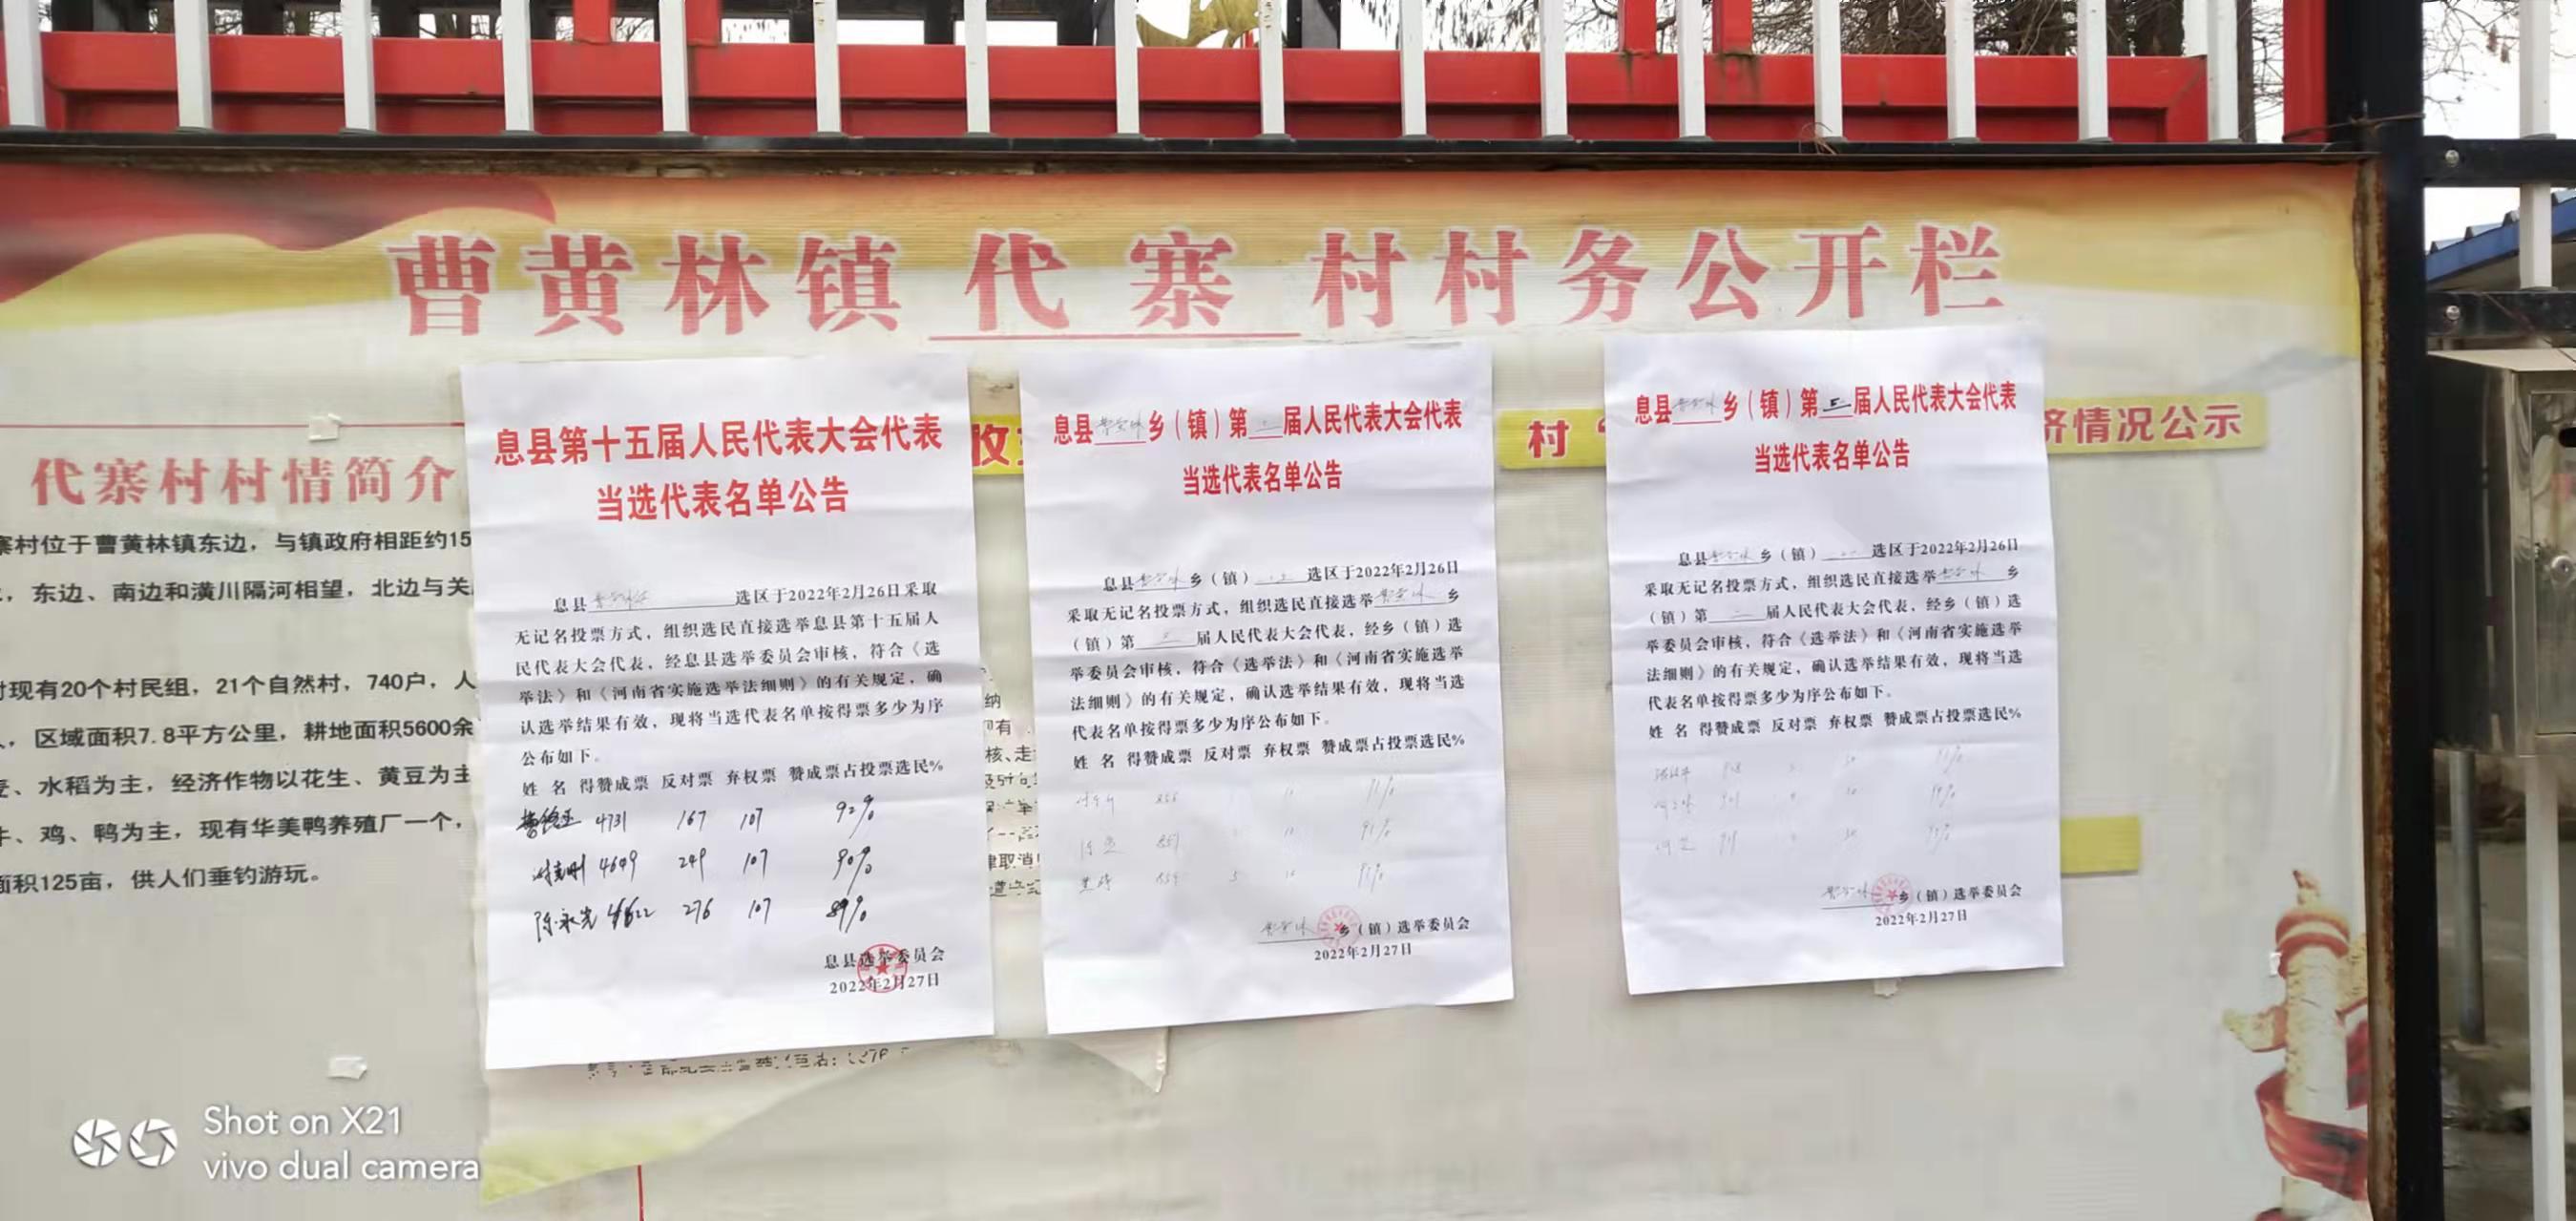 曹黄林镇代寨村村务公开栏
代寨村村情简介
寨村位于曹黄林镇东边，与镇政府相距约15
，东边、南边和潢川隔河相望，北边与关
现有20个村民组，21个自然村，740户，人
，区域面积7.8平方公里，耕地面积5600余
、水稻为主，经济作物以花生、黄豆为主
、鸡、鸭为主，现有华美鸭养殖厂一个，
面积125亩，供人们垂钓游玩。
息县第十五届人民代表大会代表
当选代表名单公告
息县 选区于2022年2月26日采取
无记名投票方式，组织选民直接选举息县第十五届人
民代表大会代表，经息县选举委员会审核，符合《选
举法》和《河南省实施选举法细则》的有关规定，确
认选举结果有效，现将当选代表名单按得票多少为序
公布如下。
姓 名 得赞成票 反对票 弃权票 赞成票占投票选民%
4731 167 107 92%
249 107 90%
陈永光 276 107 89%
息县选举委员会
2022年2月27日
息县 乡（镇）第 届人民代表大会代表
当选代表名单公告
息县 乡（镇） 选区于2022年2月26日
采取无记名投票方式，组织选民直接选举 乡
（镇）第 届人民代表大会代表，经乡（镇）选
举委员会审核，符合《选举法》和《河南省实施选举
法细则》的有关规定，确认选举结果有效，现将当选
代表名单按得票多少为序公布如下。
姓 名 得赞成票 反对票 弃权票 赞成票占投票选民%
乡（镇）选举委员会
2022年2月27日
村
济情况公示
息县 乡（镇）第 届人民代表大会代表
当选代表名单公告
息县 乡（镇） 选区于2022年2月26日
采取无记名投票方式，组织选民直接选举 乡
（镇）第 届人民代表大会代表，经乡（镇）选
举委员会审核，符合《选举法》和《河南省实施选举
法细则》的有关规定，确认选举结果有效，现将当选
代表名单按得票多少为序公布如下。
姓 名 得赞成票 反对票 弃权票 赞成票占投票选民%
乡（镇）选举委员会
2022年2月27日
Shot on X21
vivo dual camera